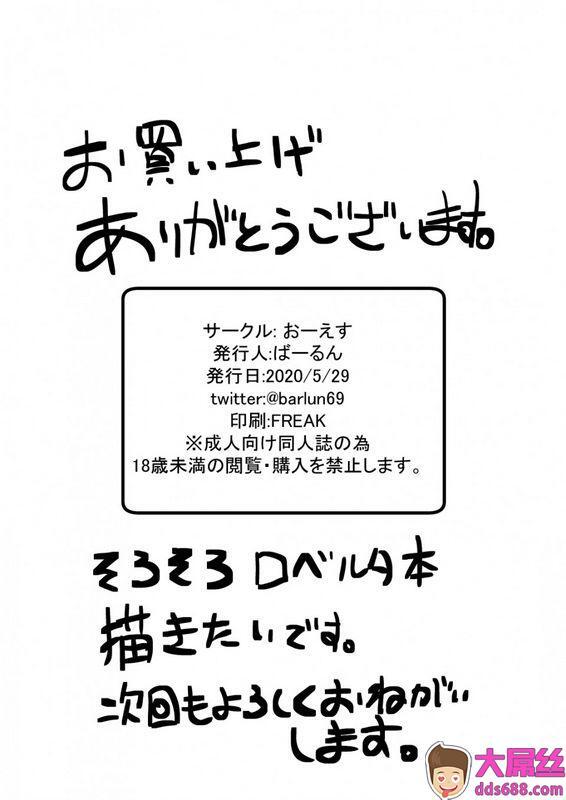 お買い上げ
ありがとうございます。
サークル: おーえす
発行人:ばーるん
発行日:2020/5/29
twitter:@barlun69
印刷:FREAK
※成人向け同人誌の為
18歳未満の閲覧・購入を禁止します。
そろそろロベルタ本
描きたいです。
次回もよろしくおねがい
します。
大屌丝
dds688.com